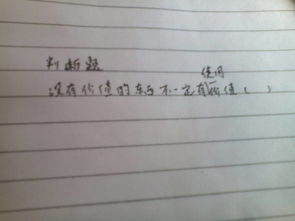 判断题
没有价值的东西不一定有使用价值（ ）